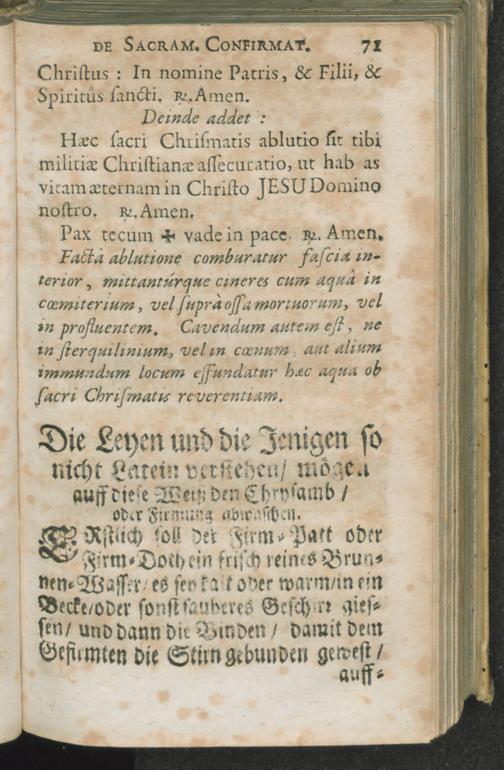 DE SACRAM. CONFIRMAT. 71
Chriſtus : In nomine Patris, & Filii, &
Spiritûs ſancti. ℟. Amen.
Deinde addet :
Hæc ſacri Chriſmatis ablutio ſit tibi
militiæ Chriſtianæ aſſecuratio, ut hab as
vitam æternam in Chriſto JESU Domino
noſtro. ℟. Amen.
Pax tecum ✠ vade in pace. ℟. Amen.
Factâ ablutione comburatur faſcia in-
terior, mittantúrque cineres cum aquâ in
cœmiterium, vel ſuprà oſſa mortuorum, vel
in profluentem. Cavendum autem eſt, ne
in ſterquilinium, vel in cœnum, aut alium
immundum locum effundatur hæc aqua ob
ſacri Chriſmatis reverentiam.
Die Leyen und die Jenigen ſo
nicht Latein verſtehen/ mögen
auff dieſe Weiß den Chryſamb /
oder Firmung abwaſchen.
ERſtlich ſoll der Firm-Patt oder
Firm-Doth ein friſch reines Brun-
nen-Waſſer/ es ſey kalt oder warm/ in ein
Becke/ oder ſonſt ſauberes Geſchirr gieſ-
ſen/ und dann die Binden / damit dem
Gefirmten die Stirn gebunden geweſt /
auff-